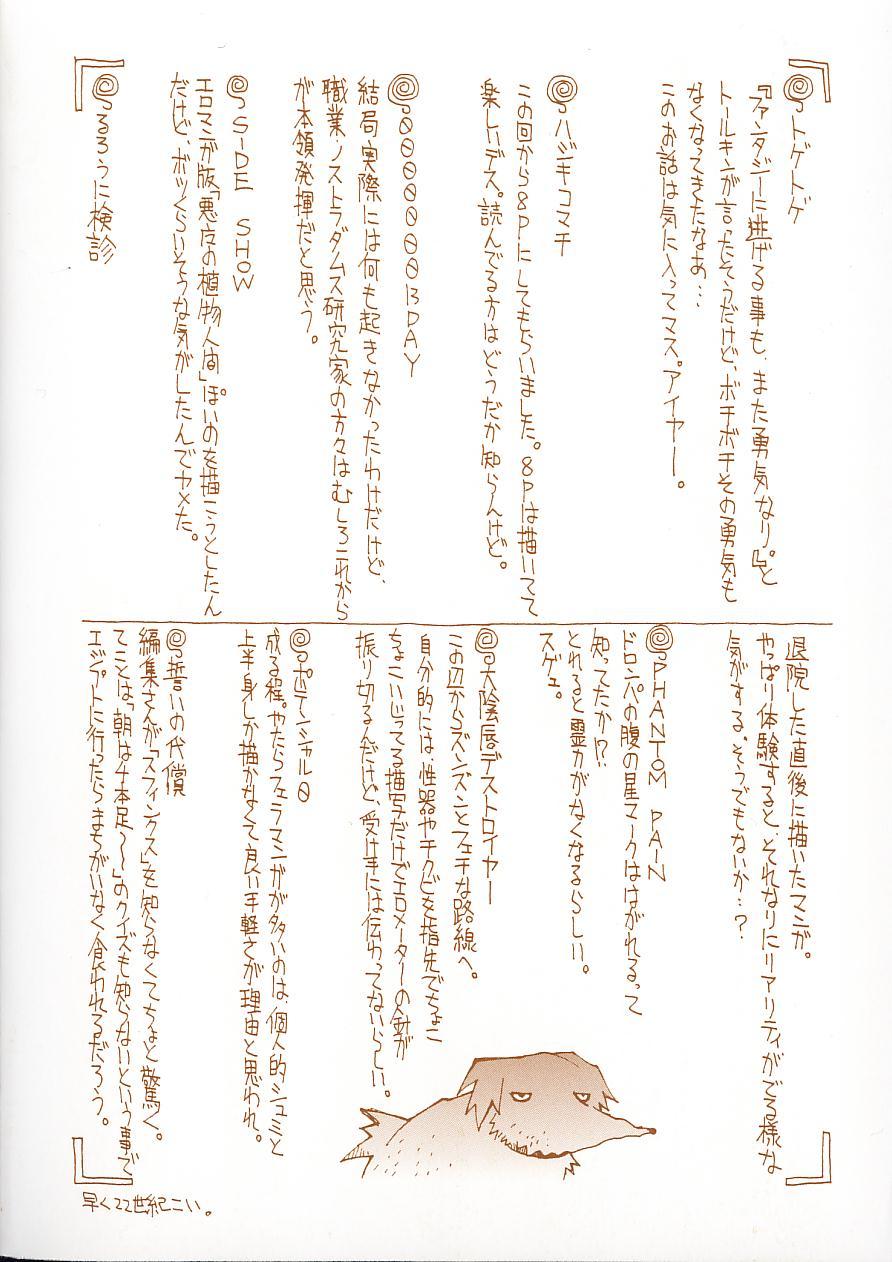 トゲトゲ
『ファンタジーに逃げる事も、また勇気なり。』と
トールキンが言ったそうだけど、ボチボチその勇気も
なくなってきたなあ…
このお話は気に入ってマス。アイヤー。
ハジキコマチ
この回から8Pにしてもらいました。8Pは描いてて
楽しいデス。読んでる方はどうだか知らんけど。
0000000B DAY
結局実際には何も起きなかったわけだけど、
職業・ノストラダムス研究家の方々はむしろこれから
が本領発揮だと思う。
SIDE SHOW
エロマンガ版「悪夜の植物人間」ぽいのを描こうとしたん
だけど、ボツくらいそうな気がしたんでヤメた。
るろうに検診
退院した直後に描いたマンガ。
やっぱり体験すると、それなりにリアリティがでる様な
気がする。そうでもないか…?
PHANTOM PAIN
ドロンパの腹の星マークははがれるって
知ってたか!?
とれると霊力がなくなるらしい。
スゲェ。
大陰唇デストロイヤー
この辺からズンズンとフェチな路線へ。
自分的には、性器やチクビを指先でちょこ
ちょこいじってる描写だけでエロメーターの針が
振り切るんだけど、受け手には伝わってないらしい。
ポテンシャル0
成る程。やたらフェラマンガが多いのは、個人的シュミと
上半身しか描かなくて良い手軽さが理由と思われ。
誓いの代償
編集さんが「スフィンクス」を知らなくてちょと驚く。
てことは、「朝は4本足〜〜」のクイズも知らないという事で
エジプトに行ったらまちがいなく食われるだろう。
早く22世紀こい。